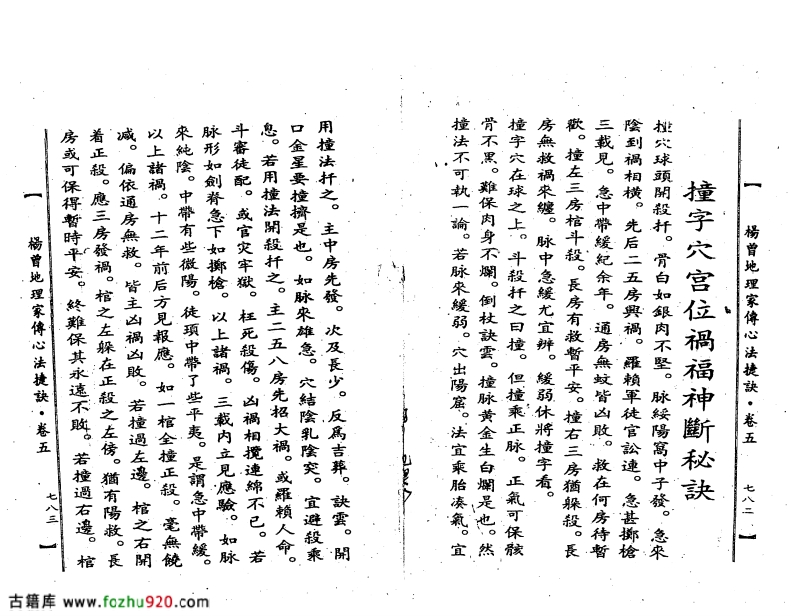 【 楊曾地理家傳心法捷訣·卷五 七八二 】
撞字穴宮位禍福神斷秘訣
撞穴球頭開殺扦。骨白如銀肉不堅。脉綏陽窩中子發。急來
陰到禍相橫。先后二五房興禍。羅賴軍徒官訟連。急甚擲槍
三載見。急中帶緩紀余年。通房無蚊皆凶敗。救在何房待暫
歡。撞左三房棺斗殺。長房有救暫平安。撞右三房猶躲殺。長
房無救禍來纏。脉中急緩尤宜辨。緩弱休將撞字看。
撞字穴在球之上。斗殺扦之曰撞。但撞乘正脉。正氣可保骸
骨不黑。難保肉身不爛。倒杖訣雲。撞脉黃金生白爛是也。然
撞法不可執一論。若脉來緩弱。穴出陽窟。法宜乘胎湊氣。宜
用撞法扦之。主中房先發。次及長少。反爲吉葬。訣雲。開
口金星要撞擠是也。如脉來雄急。穴結陰乳陰突。宜避殺乘
息。若用撞法開殺扦之。主二五八房先招大禍。或羅賴人命。
斗審徒配。或官灾牢獄。枉死殺傷。凶禍相攪連綿不已。若
脉形如劍脊急下如擲槍。以上諸禍。三載内立見應驗。如脉
來純陰。中帶有些微陽。徒項中帶了些平夷。是謂急中帶緩。
以上諸禍。十二年前后方見報應。如一棺全撞正殺。毫無饒
减。偏依通房無救。皆主凶禍凶敗。若撞過左邊。棺之右開
着正殺。應三房發禍。棺之左躲在正殺之左傍。猶有陽救。長
房或可保得暫時平安。終難保其永遠不敗。若撞過右邊。棺
【 楊曾地理家傳心法捷訣·卷五 七八三 】
古籍库 www.fozhu920.com